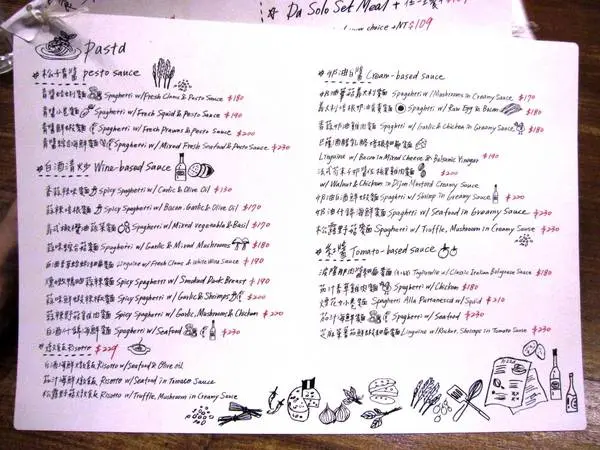 Da Solo Set Meal +
choice +NT$109
Pasta
松子青醬 pesto sauce
青醬蛤蜊麵 Spaghetti w/Fresh Clams & Pesto Sauce $180
青醬小卷麵 Spaghetti w/Fresh Squid & Pesto Sauce $190
青醬鮮蝦麵 Spaghetti w/Fresh Prawns & Pesto Sauce $200
青醬綜合海鮮麵 Spaghetti w/Mixed Fresh Seafood & Pesto Sauce $230
白酒清炒 Wine-based Sauce
蒜蒜辣味麵 Spicy Spaghetti w/ Garlic & Olive Oil $130
蒜辣培根麵 Spicy Spaghetti w/ Bacon, Garlic & Olive Oil $170
義式橄欖油蔬菜麵 Spaghetti w/ Mixed Vegetable & Basil $170
蒜味綜合菇麵 Spaghetti w/ Garlic & Mixed Mushrooms $180
Linguine w/ Fresh Clams & White Wine Sauce $190
煙燻鴨胸蒜辣麵 Spicy Spaghetti w/ Smoked Duck Breast $190
蒜味鮮蝦辣椒麵 Spicy Spaghetti w/ Garlic & Shrimps $200
蒜辣野菇雞肉麵 Spicy Spaghetti w/ Garlic, Mushrooms & Chicken $220
白酒什錦海鮮麵 Spaghetti w/Seafood $230
燉飯 Risotto $229
白酒海鮮燉飯 Risotto w/Seafood & Olive oil
茄汁海鮮燉飯 Risotto w/Seafood in Tomato Sauce
松露野菇燉飯 Risotto w/Truffle, Mushroom in Creamy Sauce
奶油白醬 Cream-based sauce
奶油蘑菇義大利麵 Spaghetti w/Mushrooms in Creamy Sauce $170
義大利培根奶油蛋黃麵 Spaghetti w/ Raw Egg & Bacon $180
香蒜奶油雞肉麵 Spaghetti w/ Garlic & Chicken in Creamy Sauce $180
巴薩米酒醋乳酪培根細扁麵
Linguine w/ Bacon in Mixed Cheese & Balsamic Vinegar $190
法式芥末奶醬核桃雞肉麵 $200
w/ Walnut & Chicken in Dijon Mustard Creamy Sauce
奶油白酒鮮蝦麵 Spaghetti w/ Shrimp in Creamy Sauce $200
奶油什錦海鮮麵 Spaghetti w/ Seafood in Creamy Sauce $230
松露野菇麵 Spaghetti w/ Truffle, Mushroom in Creamy Sauce $230
紅醬 Tomato-based sauce
波隆那肉醬細扁麵 Tagliatelle w/ Classic Italian Bolognese Sauce $180
茄汁香草雞肉麵 Spaghetti w/ Chicken $180
煙花女小卷麵 Spaghetti Alla Puttanesca w/ Squid $210
茄汁海鮮麵 Spaghetti w/ Seafood $230
芝麻葉蕃茄鮮蝦細扁麵 Linguine w/Rocket, Shrimps in Tomato Sauce $230